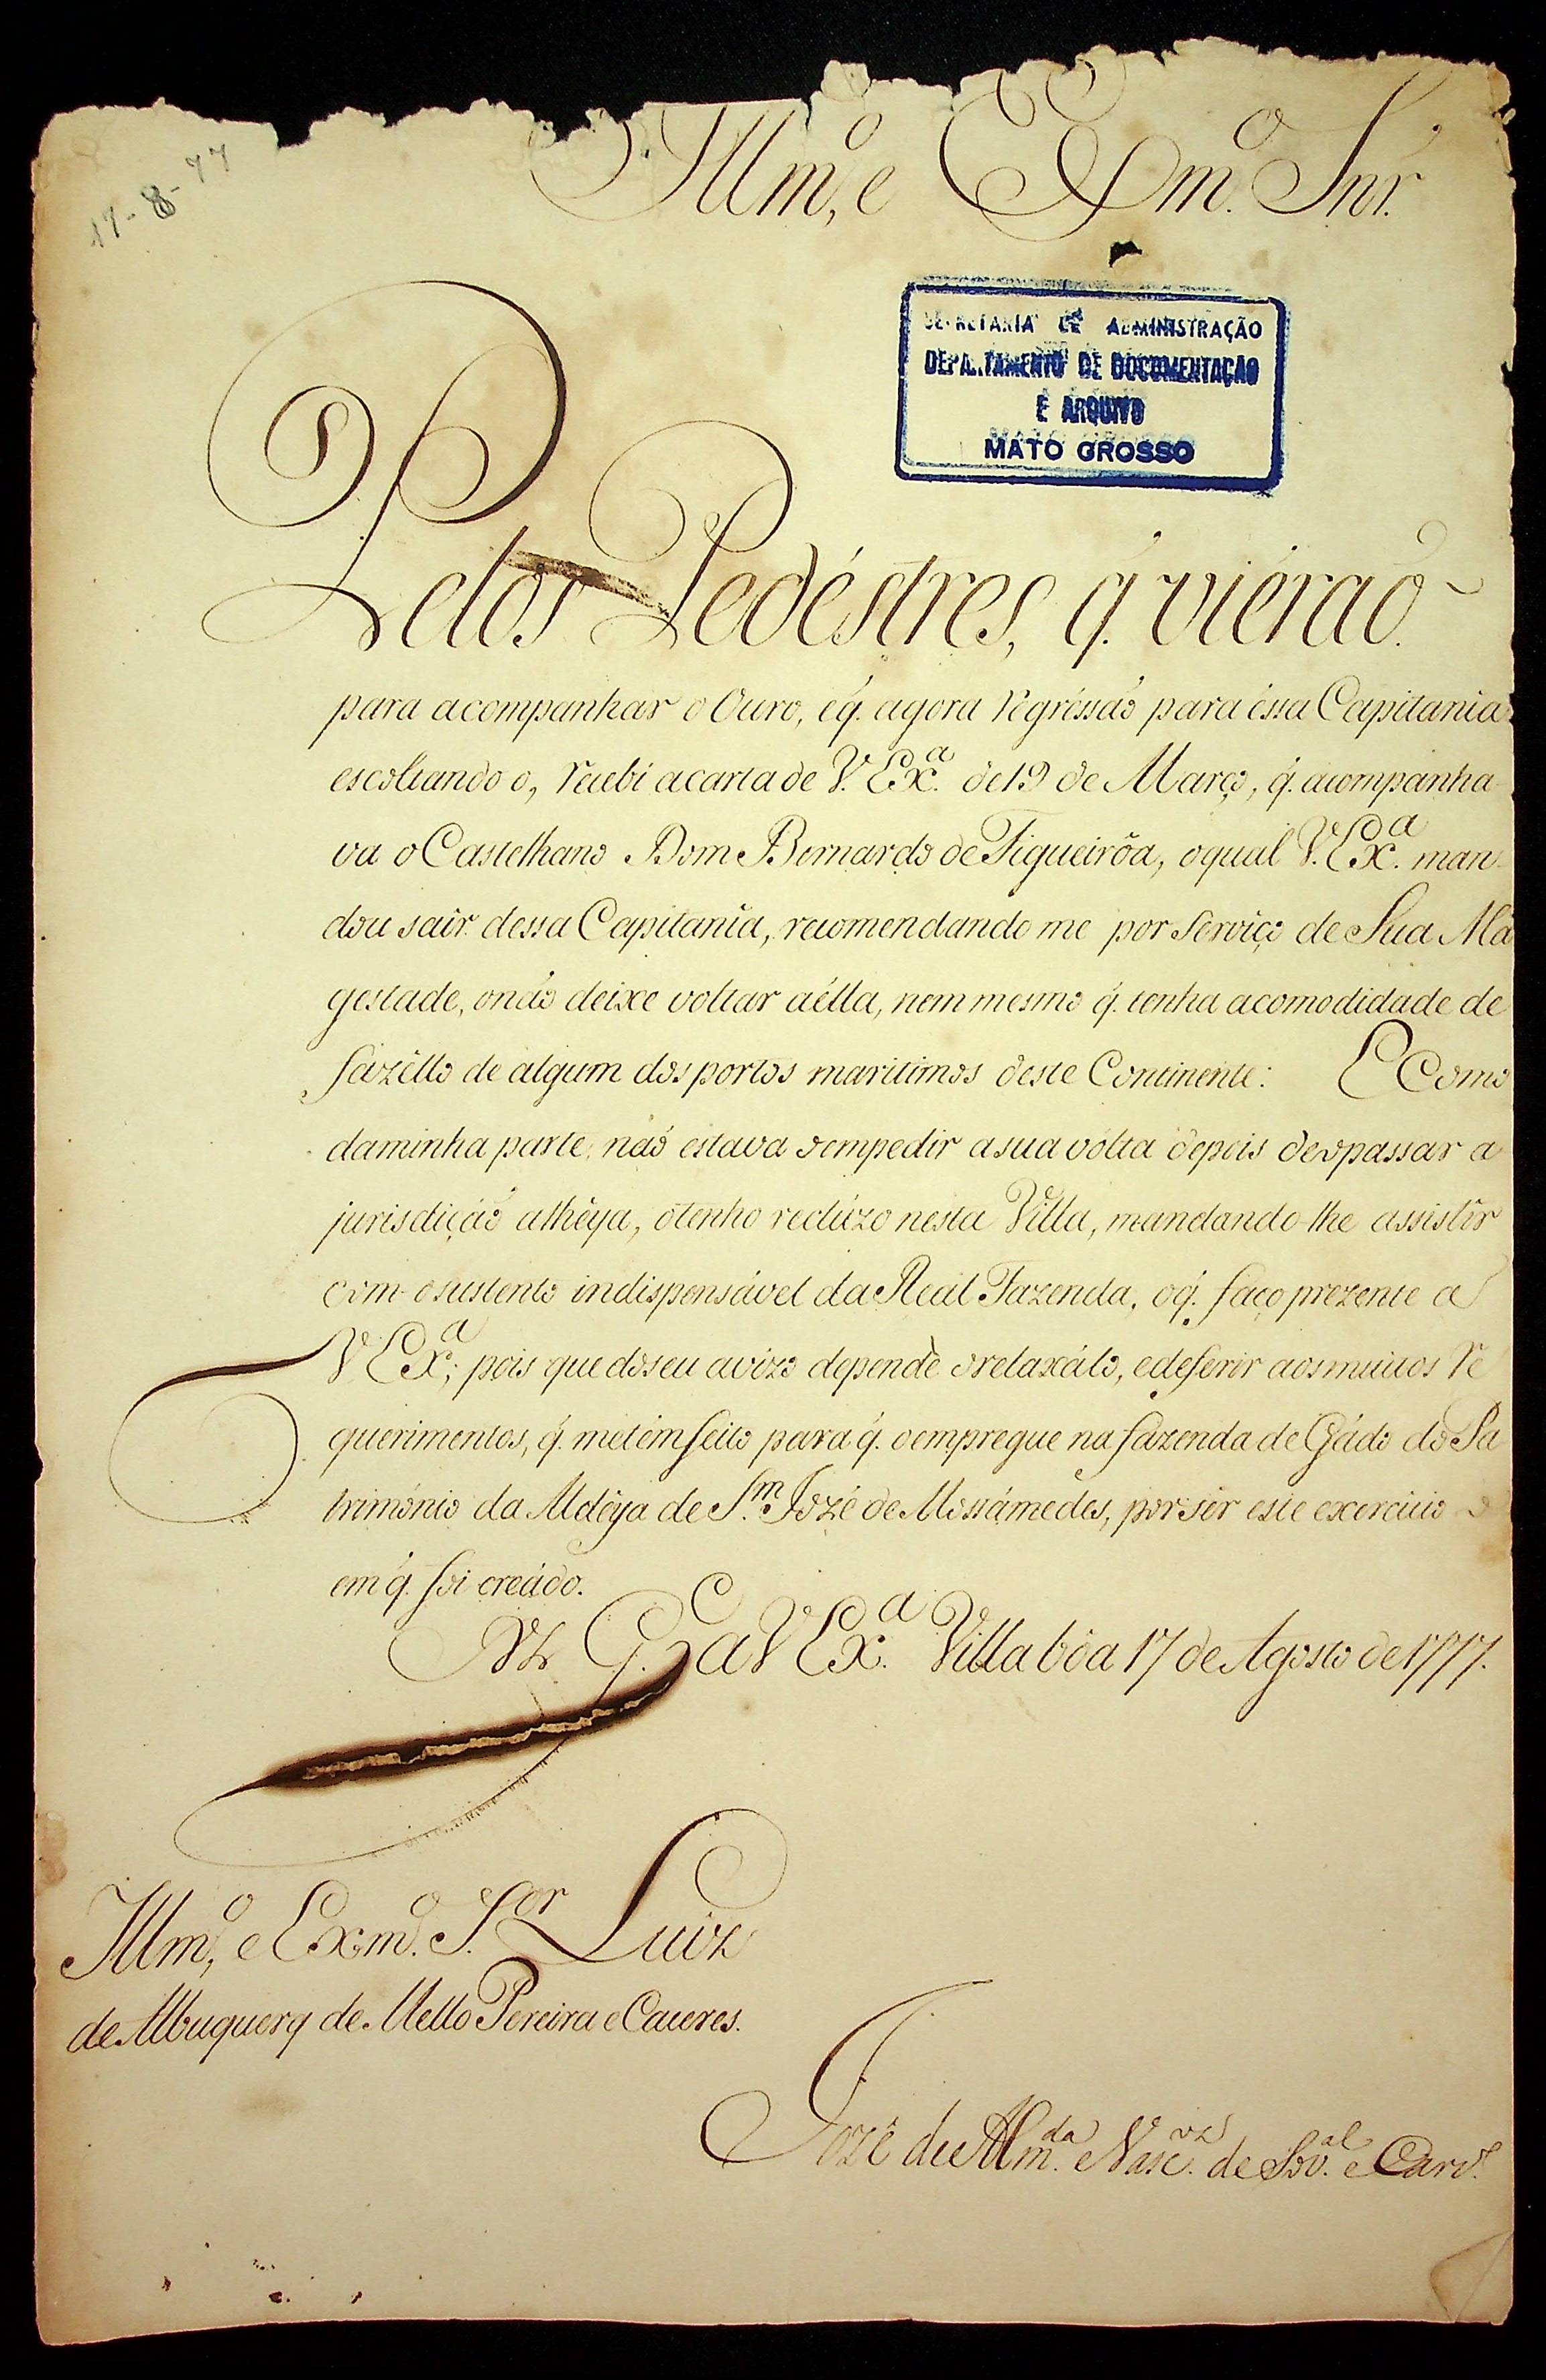 17-8-77
Illm.º, e Exm.º Snr.
SECRETARIA DE ADMINISTRAÇÃO
DEPARTAMENTO DE DOCUMENTAÇÃO
E ARQUIVO
MATO GROSSO
Pelos Pedéstres, q̃. viérão
para acompanhar o Ouro, e q̃. agora regréssão para éssa Capitania
escoltando o, recebi a carta de V. Ex.ª de 19 de Março, q̃. acompanha
va o Castelhano Dom Bernardo de Figueirôa, o qual V. Ex.ª man
dou sair dessa Capitanîa, recomendando me por Serviço de Sua Ma
gestade, o não deixe voltar a élla, nem mesmo q̃. tenha a comodidade de
fazêllo de algum dos portos maritimos deste Continente: E Como
da minha parte não estava o empedir a sua vólta depois de o passar a
jurisdição alhêya, o tenho reclúzo nesta Villa, mandando-lhe assistîr
com o sustento indispensável da Real Fazenda, o q̃. faço prezente a
V Ex.ª; pois que do seu avizo depende o relaxálo, e deferir aos muitos re
querimentos, q̃. me tem feito para q̃. o empregue na fazenda de Gádo do Pa
trimónio da Aldêya de S.m Jozé de Mossámedes, por sêr este exercicio o
em q̃. foi creádo.
D.s G.e a V Ex.ª Villa bôa 17 de Agosto de 1777.
Illm.º, e Exm.º S.or Luiz
de Albuquerq de Mello Pereira e Caceres.
Jozé de Alm.da e Vasc.os de Sov.al e Carv.º